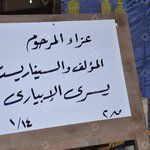 عزاء المرحوم
المؤلف والسيناريست
يسرى الإبيارى
١/١٤